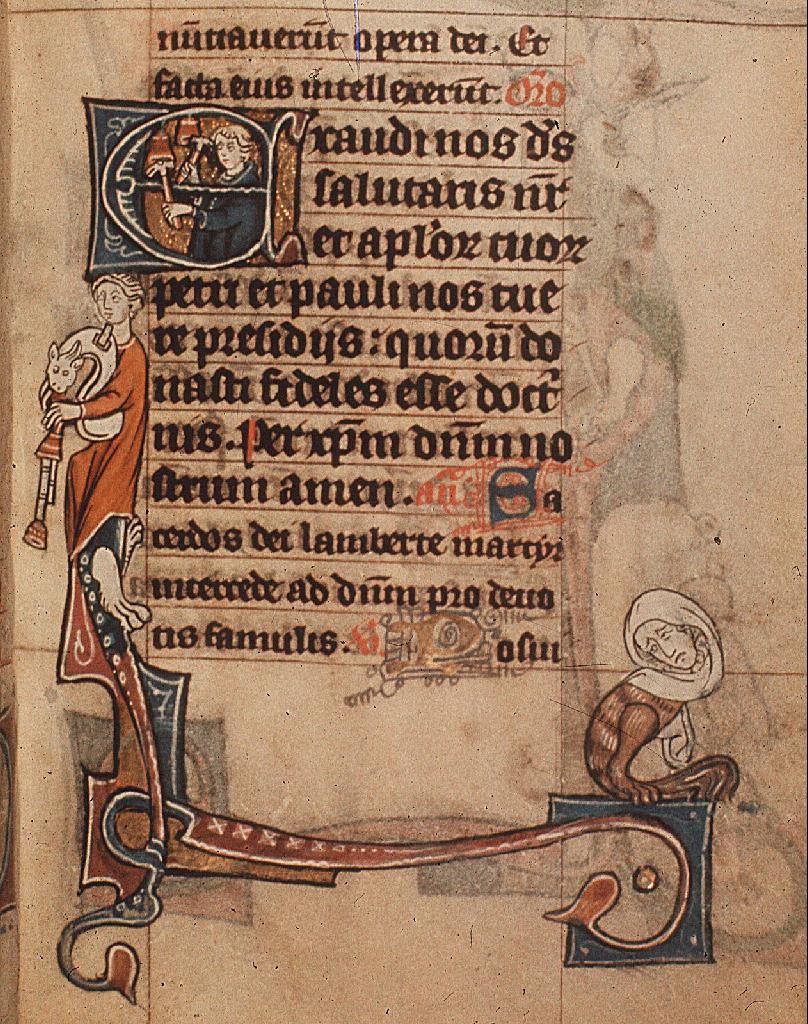 nūtiauerūt opera dei. Et
facta eius intellexerūt. Oro
Exaudi nos d̄s
salutaris n̄r
et aplōr tuor
petri et pauli nos tue
re presidijs: quorū do
nasti fideles esse doct
nis. Per xp̄m dn̄m no
strum amen. añ Sa
cerdos dei lamberte martyr
intercede ad dn̄m pro deuo
tis famulis. osui